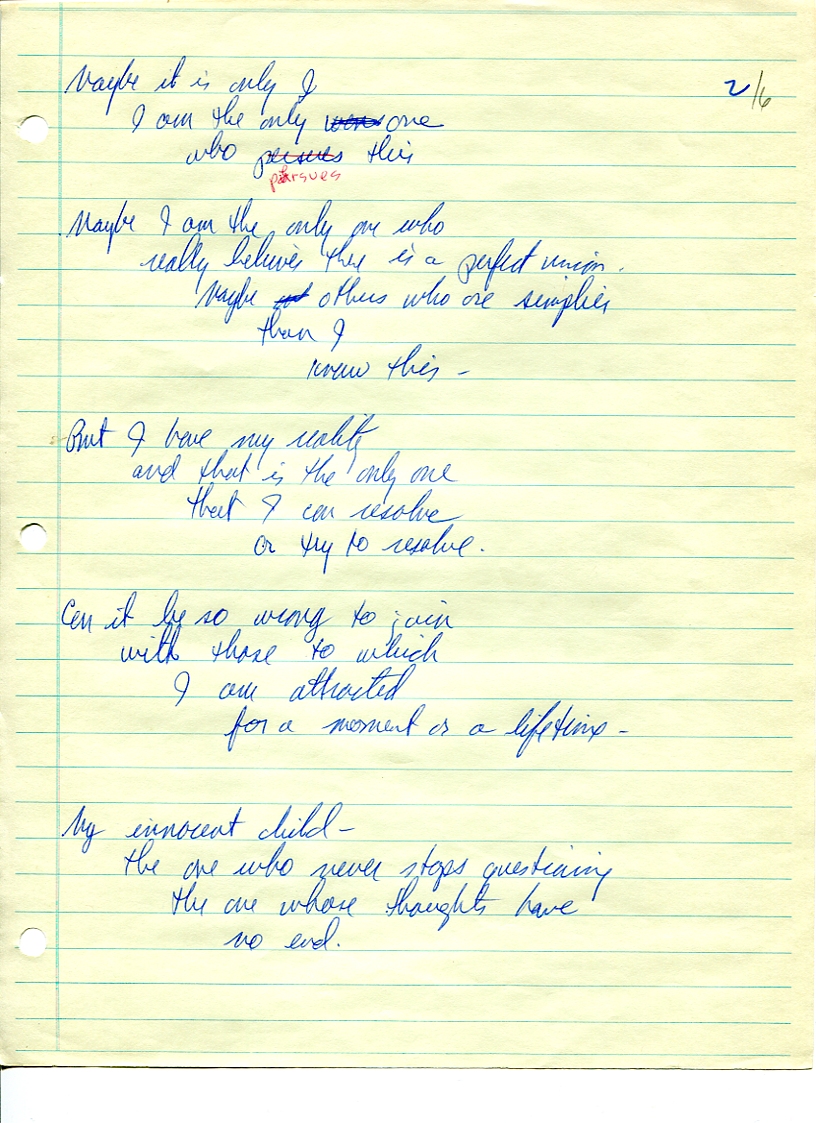 Maybe it is only I
2/6
I am the only one
who pursues this
Maybe I am the only one who
really believes there is a perfect union.
Maybe others who are simplier
than I
know this -
But I have my reality
and that is the only one
that I can resolve
or try to resolve.
Can it be so wrong to join
with those to which
I am attracted
for a moment or a lifetime -
My innocent child -
the one who never stops questioning
the one whose thoughts have
no end.